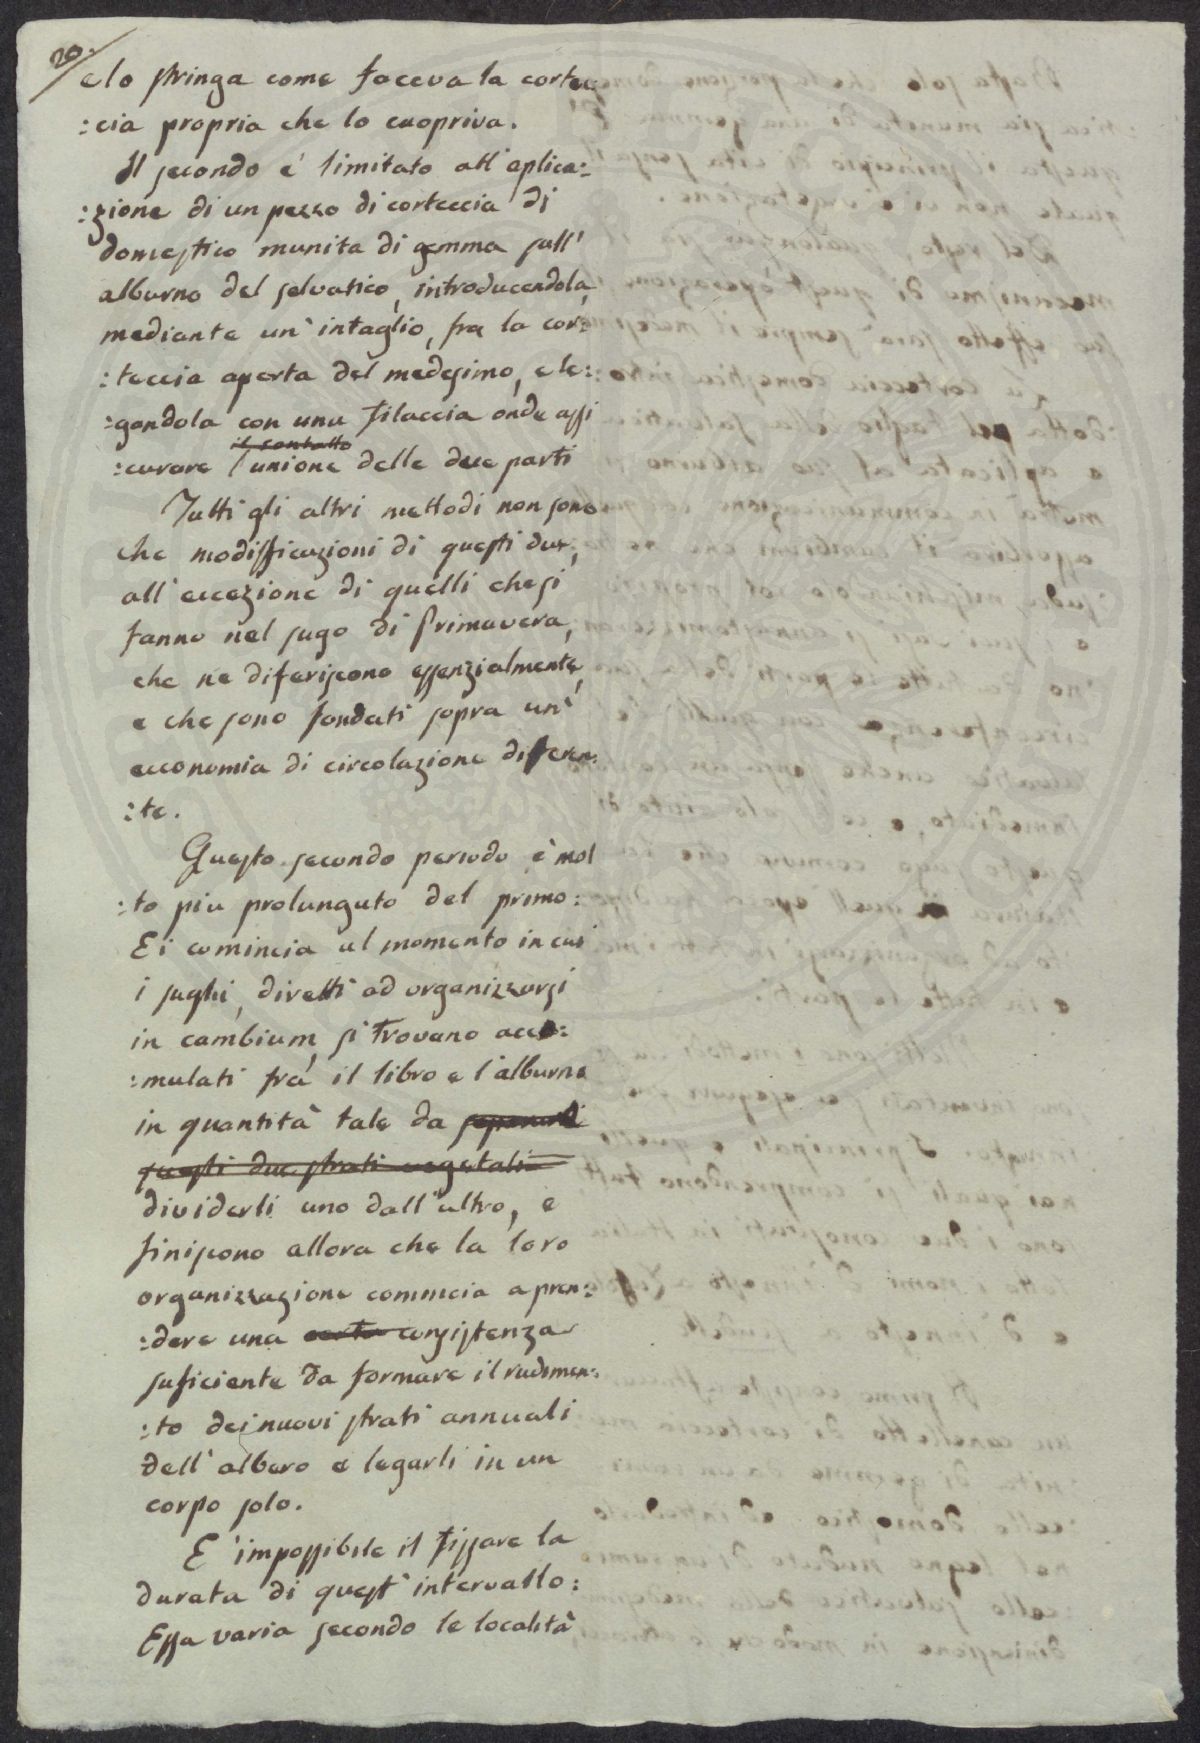 20.
e lo stringa come faceva la cortec
:cia propria che lo cuopriva.
Il secondo e' limitato all'aplica:
:zione di un pezzo di corteccia di
domestico munita di gemma sull'
alburno del selvatico, introducendola,
mediante un' intaglio, fra la cor:
:teccia aperta del medesimo, e le:
:gandola con una filaccia onde assi
il contatto
:curare l'unione delle due parti
Tutti gli altri mettodi non sono
che modifficazioni di questi due,
all' eccezione di quelli che si
fanno nel sugo di Primavera,
che ne diferiscono essenzialmente,
e che sono fondati sopra un'
economia di circolazione diferen:
:te.
Questo secondo periodo è mol
:to piu prolungato del primo:
Ei comincia al momento in cui
i sughi, diretti ad organizzarsi
in cambium, si trovano accu:
:mulati fra il libro e l'alburno
in quantità tale da separarli
questi due strati vegetali
dividerli uno dall'altro, e
finiscono allora che la loro
organizzazione comincia a pren:
:dere una certa consistenza
suficiente da formare il rudimen:
:to dei nuovi strati annuali
dell'albero e legarli in un
corpo solo.
E' impossibile il fissare la
durata di quest' intervallo:
Essa varia secondo le località